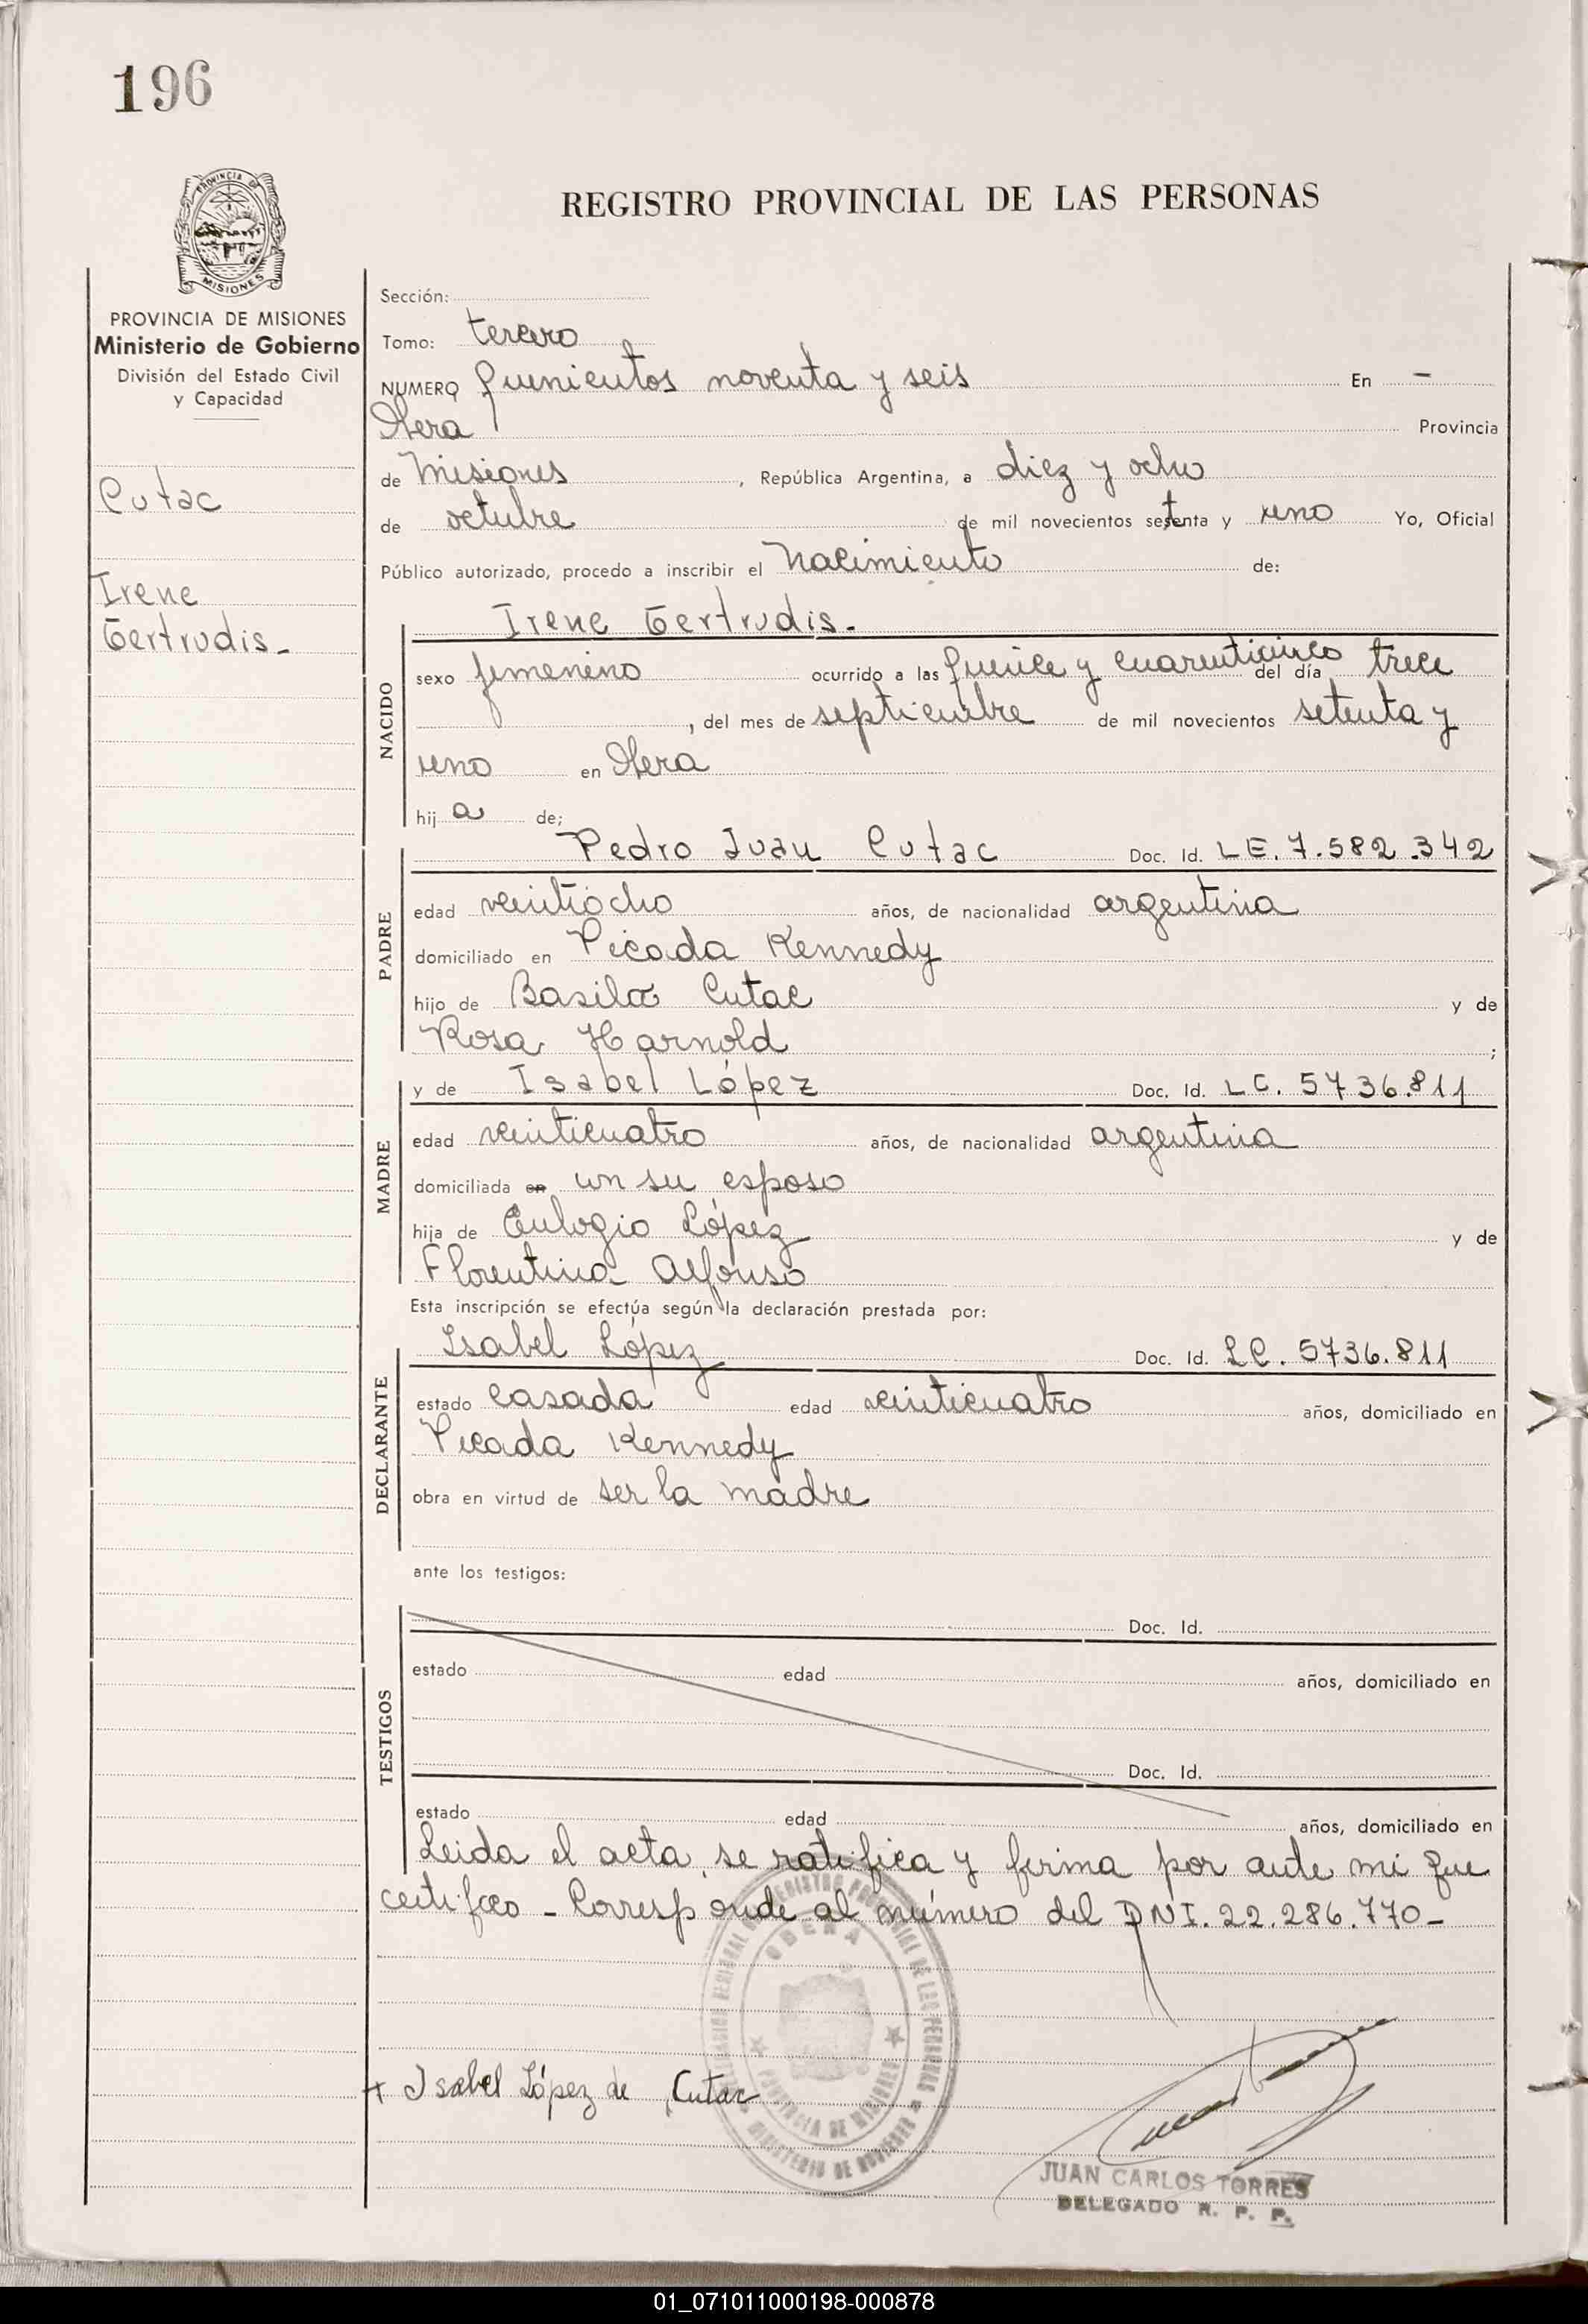 196
PROVINCIA DE
MISIONES
REGISTRO PROVINCIAL DE LAS PERSONAS
PROVINCIA DE MISIONES
Ministerio de Gobierno
División del Estado Civil
y Capacidad
Cutac
Irene
Gertrudis.
Sección:
Tomo: tercero
NUMERO Quinientos noventa y seis En -
Obera Provincia
de Misiones, República Argentina, a diez y ocho
de octubre de mil novecientos setenta y uno Yo, Oficial
Público autorizado, procedo a inscribir el Nacimiento de:
NACIDO
Irene Gertrudis.
sexo femenino ocurrido a las quince y cuarenticinco del día trece
, del mes de septiembre de mil novecientos setenta y
uno en Obera
hij a de;
PADRE
Pedro Juan Cutac Doc. Id. LE. 7.582.342
edad veintiocho años, de nacionalidad argentina
domiciliado en Picada Kennedy
hijo de Basilio Cutac y de
Rosa Harnold ;
MADRE
y de Isabel López Doc. Id. LC. 5736.811
edad veinticuatro años, de nacionalidad argentina
domiciliada en con su esposo
hija de Eulogio López y de
Florentina Alfonso
Esta inscripción se efectúa según la declaración prestada por:
DECLARANTE
Isabel López Doc. Id. LC. 5736.811
estado casada edad veinticuatro años, domiciliado en
Picada Kennedy
obra en virtud de ser la madre
ante los testigos:
TESTIGOS
Doc. Id.
estado edad años, domiciliado en
Doc. Id.
estado edad años, domiciliado en
Leida el acta, se ratifica y firma por ante mi que
certifico - Corresponde al número del DNI. 22.286.770-
OBERA
PROVINCIA DE MISIONES
+ Isabel López de Cutac
JUAN CARLOS TORRES
DELEGADO R. P. P.
01_071011000198-000878